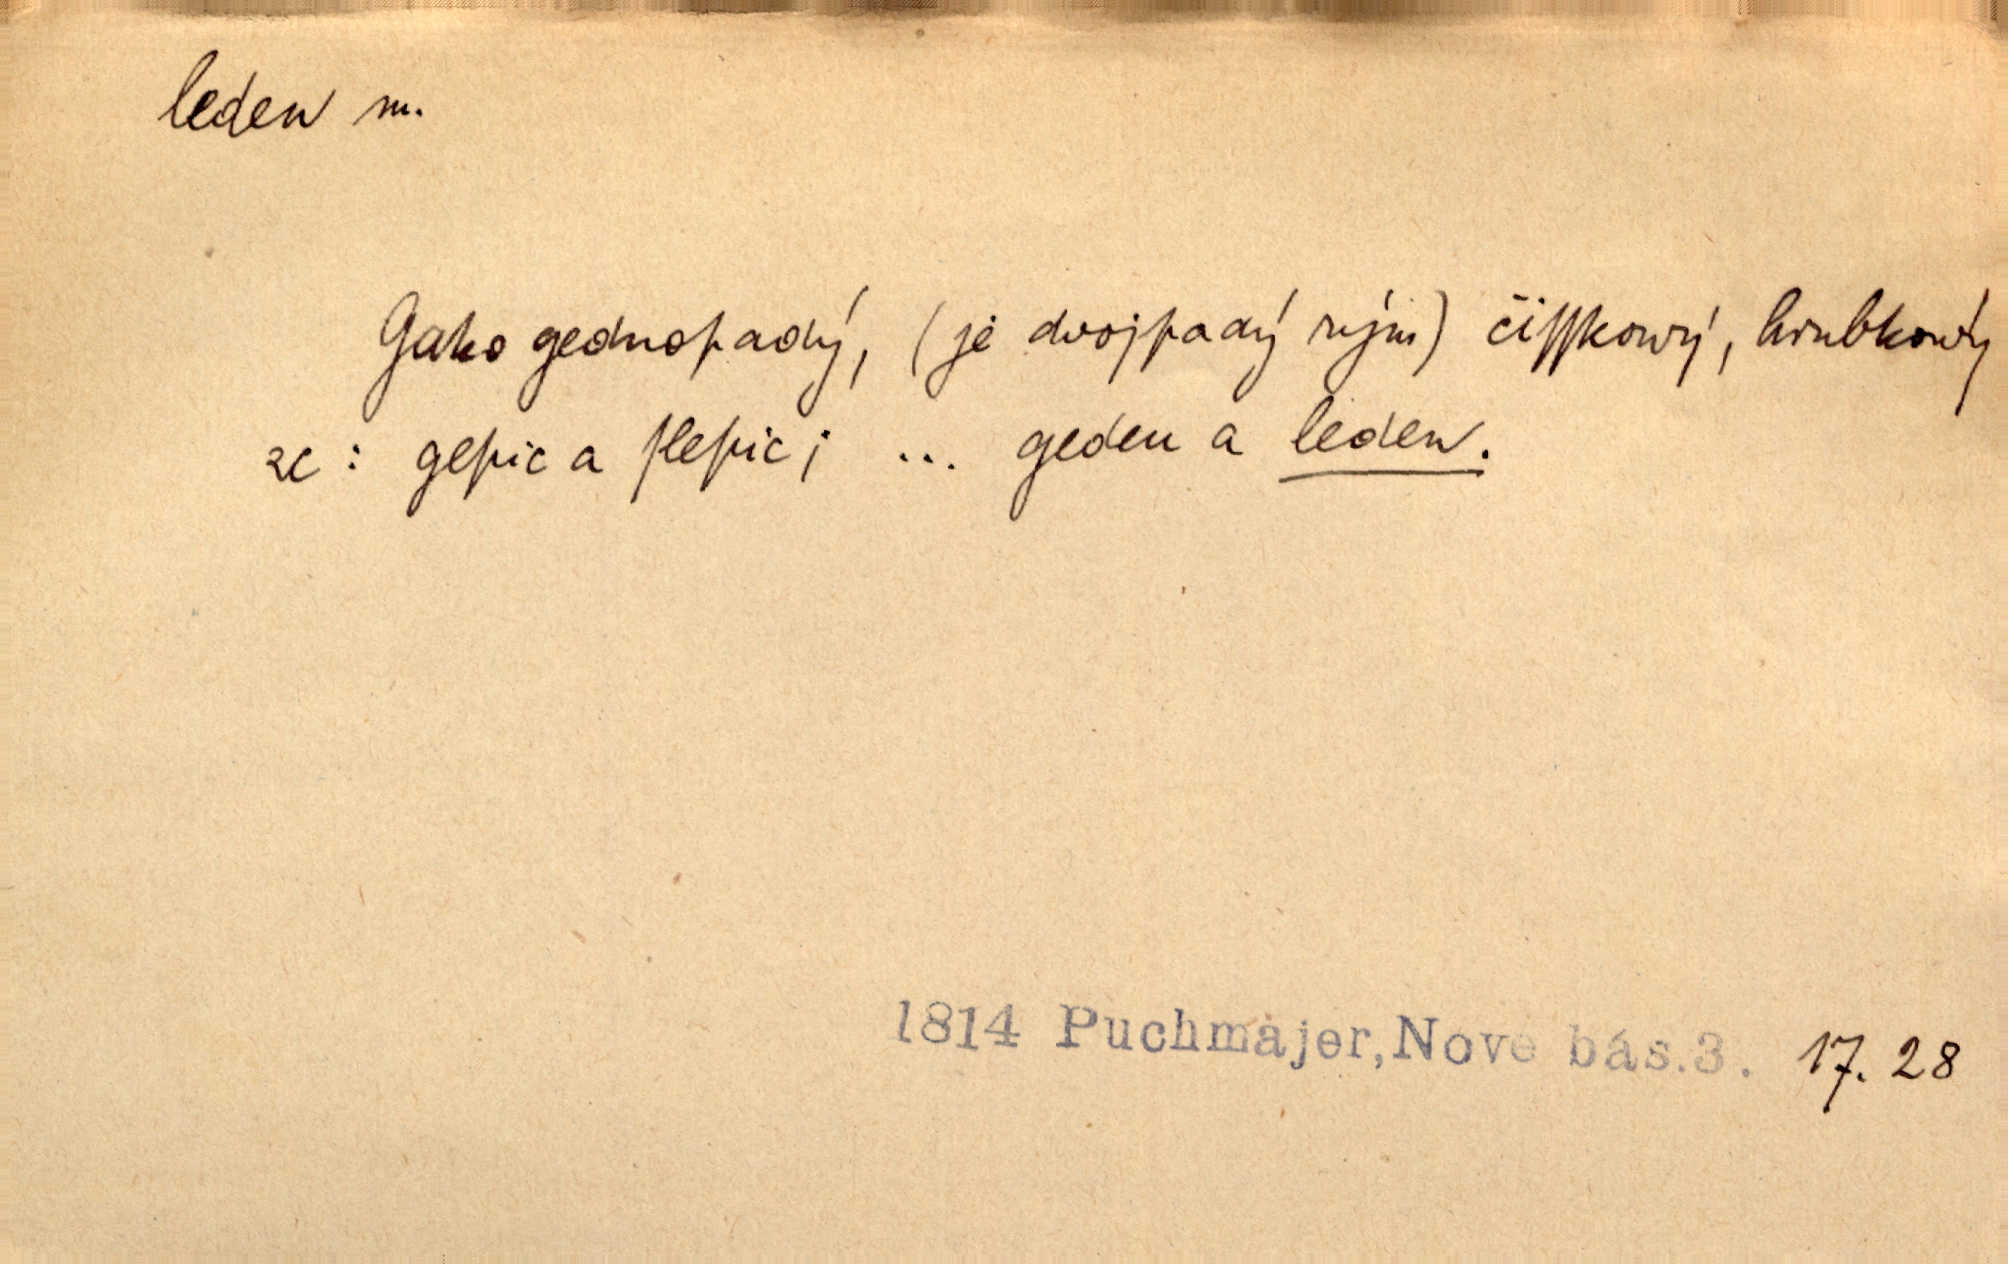 leden m.
Gako gednopadý, (je dvojpadý rým) čiſſkowý, hrubkowý
ꝛc: gepic a ſlepic; ... geden a leden.
1814 Puchmajer, Nové bás.3. 17. 28